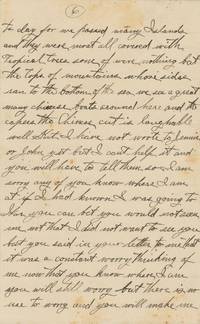 6
to day for we passed many Islands
and they were most all covered with
Tropical trees some of were nothing but
the Tops of mountains whose sides
ran to the bottom of the sea we see a great
many chinese boats around here and the
capers the Chinese cut is laughable
well I have not wrote to
or John yet but I cant help it and
you will have to tell them so I am
sorry any of you know where I am
at if I had known I was going to
you can bet you would not
me not that I did not want to see you
but you said in your letter to me that
it was a constant worry thinking of
me now that you know where I am
you will still worry but there is no
use to worry and you will make me